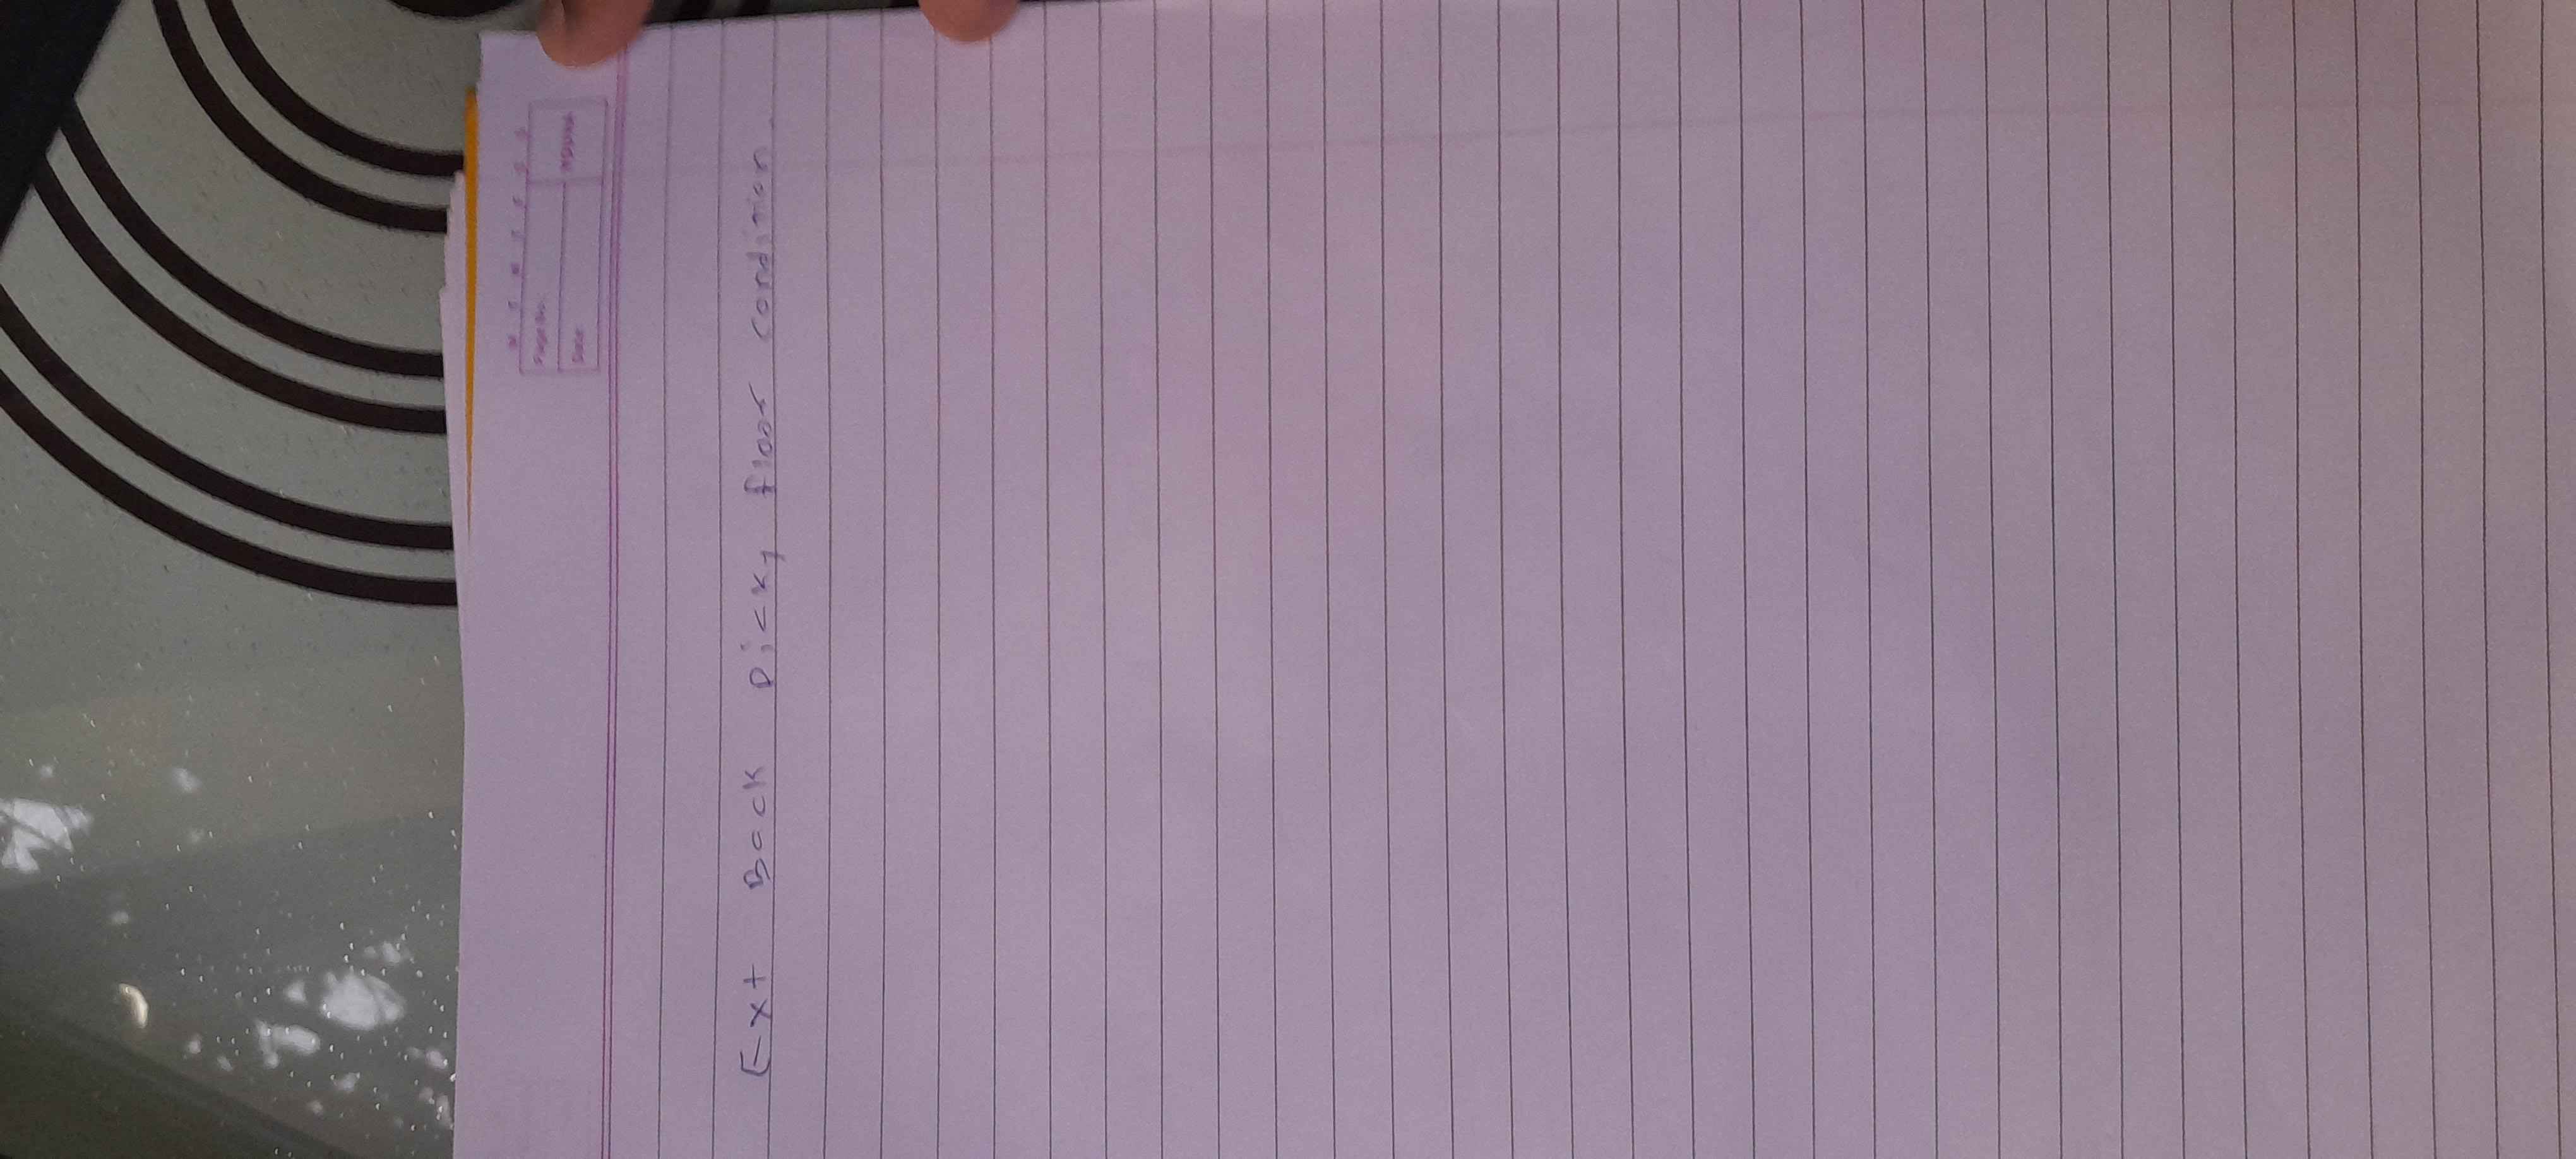 M T W T F S S
Page No.:
Date:
Ext Back Dicky floor condition.